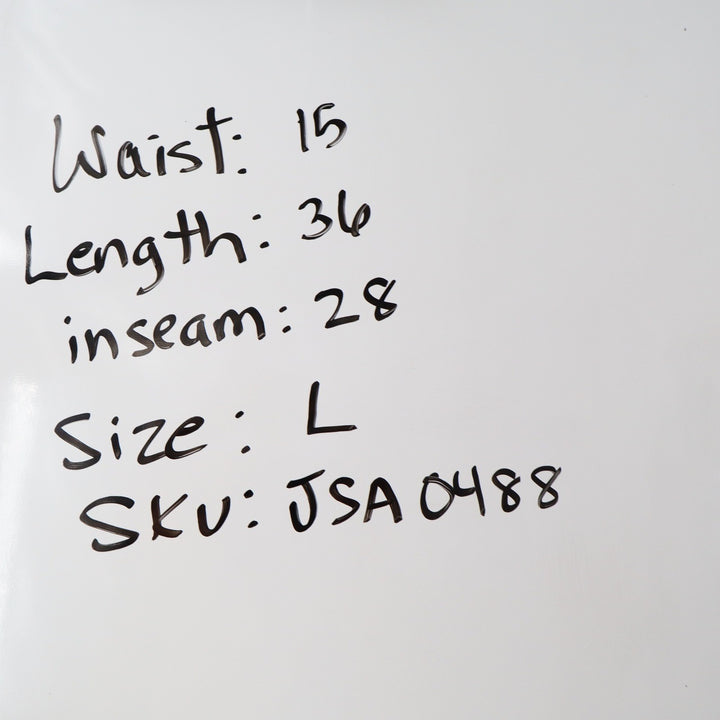 Waist: 15
Length: 36
inseam: 28
Size: L
SKU: JSA0488